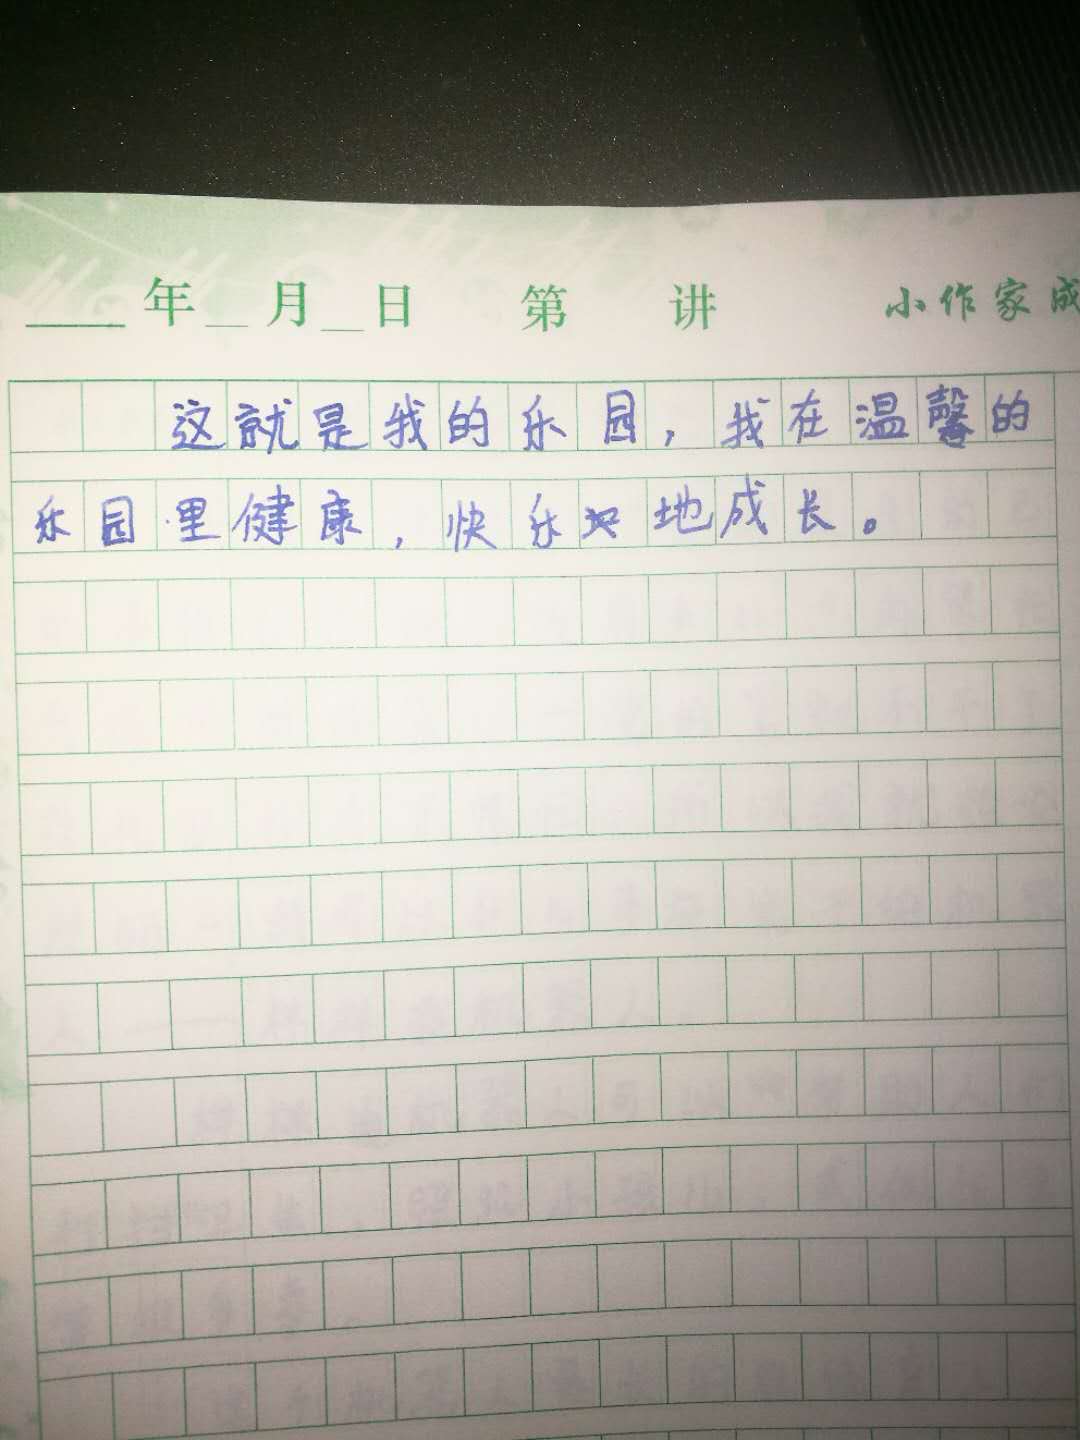 年 月 日 第 讲 小作家成
这就是我的乐园，我在温馨的
乐园里健康，快乐地成长。